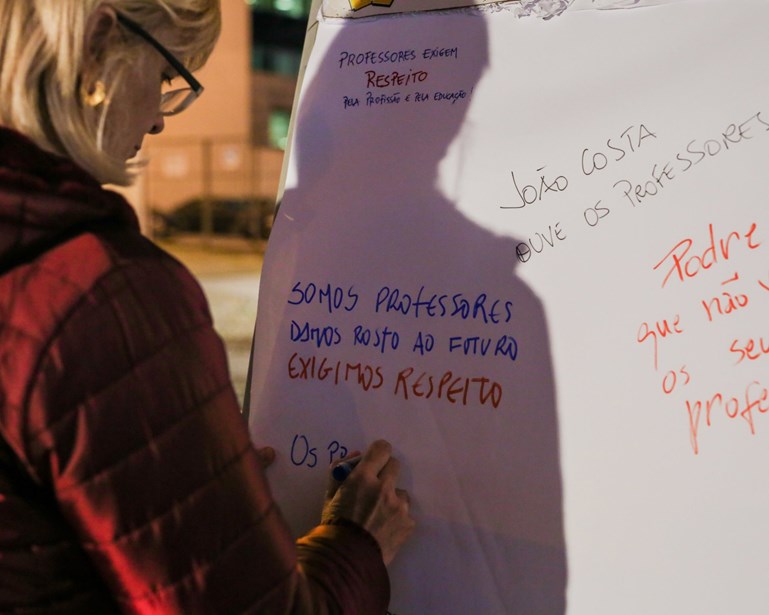 PROFESSORES EXIGEM
RESPEITO
PELA PROFISSÃO E PELA EDUCAÇÃO
JOÃO COSTA
OUVE OS PROFESSORES
SOMOS PROFESSORES
DAMOS ROSTO AO FUTURO
EXIGIMOS RESPEITO
Os Po
que não
os seu
profe